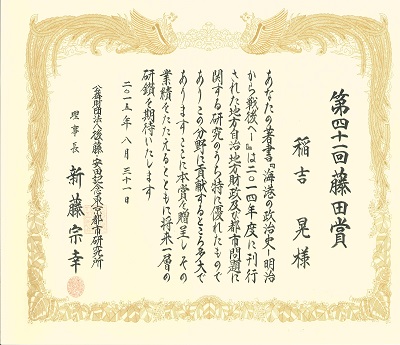 第四十一回藤田賞
稲吉 晃 様
あなたの著書『海港の政治史―明治
から戦後へ―』は二〇一四年度に刊行
された地方自治 地方財政及び都市問題に
関する研究のうち特に優れたもので
ありこの分野に貢献するところ多大で
あります ここに本賞を贈呈し その
業績をたたえるとともに将来一層の
研鑽を期待いたします
二〇一五年 八月 三十一日
公益財団法人 後藤・安田記念東京都市研究所
理事長 新藤宗幸